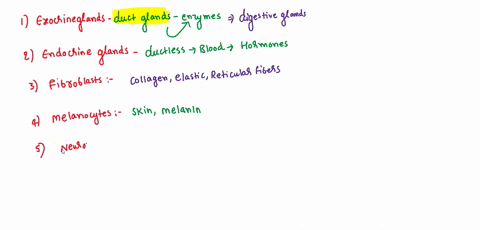 1) Exocrineglands - duct glands - enzymes ⇒ digestive glands
2) Endocrine glands - ductless → Blood → Hormones
3) Fibroblasts :- Collagen, elastic, Reticular Fibers
4) Melanocytes :- Skin, Melanin
5) Neuro